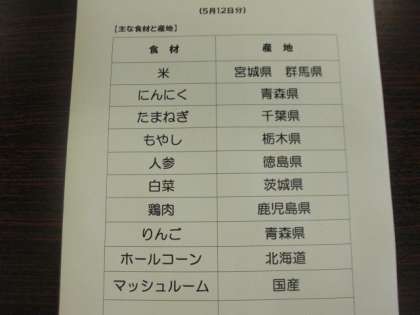 (5月12日分)
【主な食材と産地】
食材 産地
米 宮城県 群馬県
にんにく 青森県
たまねぎ 千葉県
もやし 栃木県
人参 徳島県
白菜 茨城県
鶏肉 鹿児島県
りんご 青森県
ホールコーン 北海道
マッシュルーム 国産